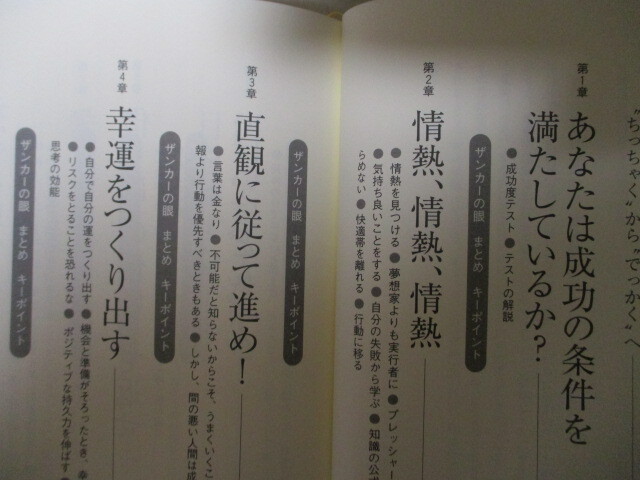 “ちっちゃく”から“でっかく”へ
第1章
あなたは成功の条件を
満たしているか？
●成功度テスト ●テストの解説
ザンカーの眼 まとめ キーポイント
第2章
情熱、情熱、情熱
●情熱を見つける ●夢想家よりも実行者に ●プレッシャー
●気持ち良いことをする ●自分の失敗から学ぶ ●知識の公式
らめない ●快適帯を離れる ●行動に移る
ザンカーの眼 まとめ キーポイント
第3章
直観に従って進め！
●言葉は金なり ●不可能だと知らないからこそ、うまくいくこ
報より行動を優先すべきときもある ●しかし、間の悪い人間は成
ザンカーの眼 まとめ キーポイント
第4章
幸運をつくり出す
●自分で自分の運をつくり出す ●機会と準備がそろったとき、幸
●リスクをとることを恐れるな ●ポジティブな持久力を伸ばす
思考の効能
ザンカーの眼 まとめ キーポイント